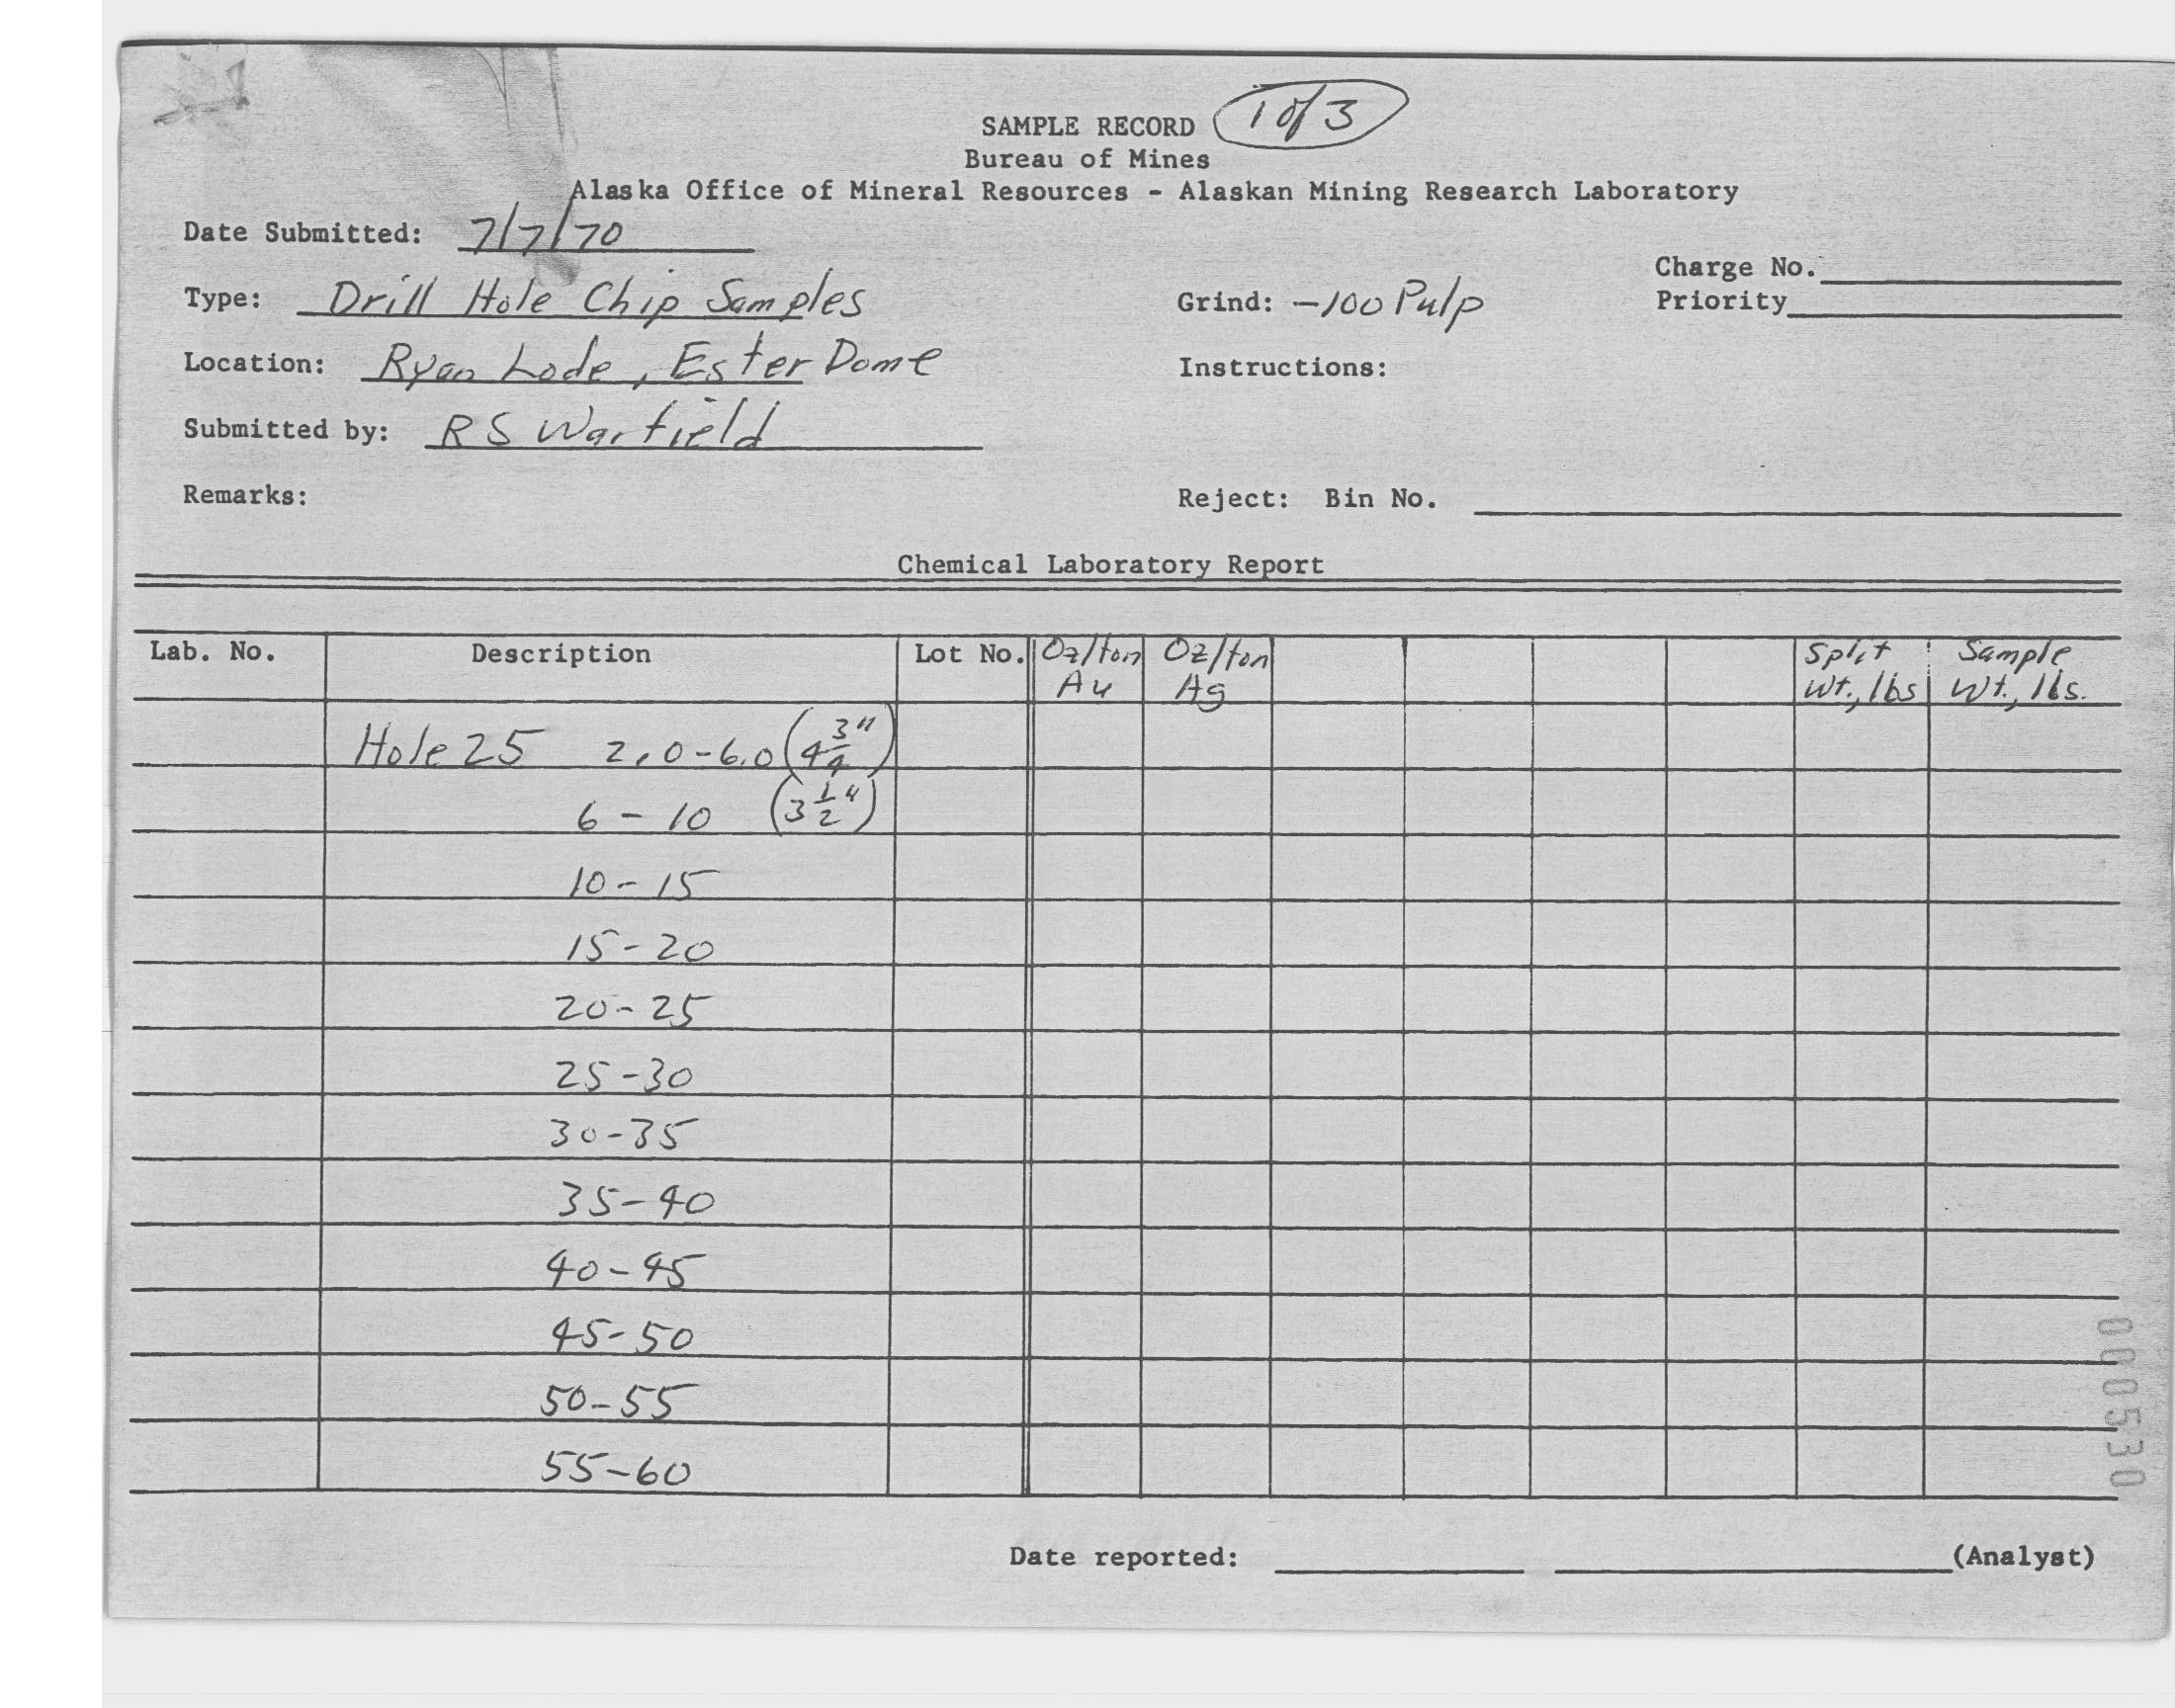 SAMPLE RECORD 1 of 3
Bureau of Mines
Alaska Office of Mineral Resources - Alaskan Mining Research Laboratory
Date Submitted: 7/7/70
Charge No.
Type: Drill Hole Chip Samples Grind: -100 Pulp Priority
Location: Ryan Lode, Ester Dome Instructions:
Submitted by: RS Warfield
Remarks: Reject: Bin No.
Chemical Laboratory Report
Lab. No. Description Lot No. Oz/ton Au Oz/ton Ag Split Wt., lbs Sample Wt., lbs.
Hole 25 2.0-6.0 (4 3/4")
6 - 10 (3 1/2")
10 - 15
15 - 20
20 - 25
25 - 30
30 - 35
35 - 40
40 - 45
45 - 50
50 - 55
55 - 60
000530
Date reported: (Analyst)